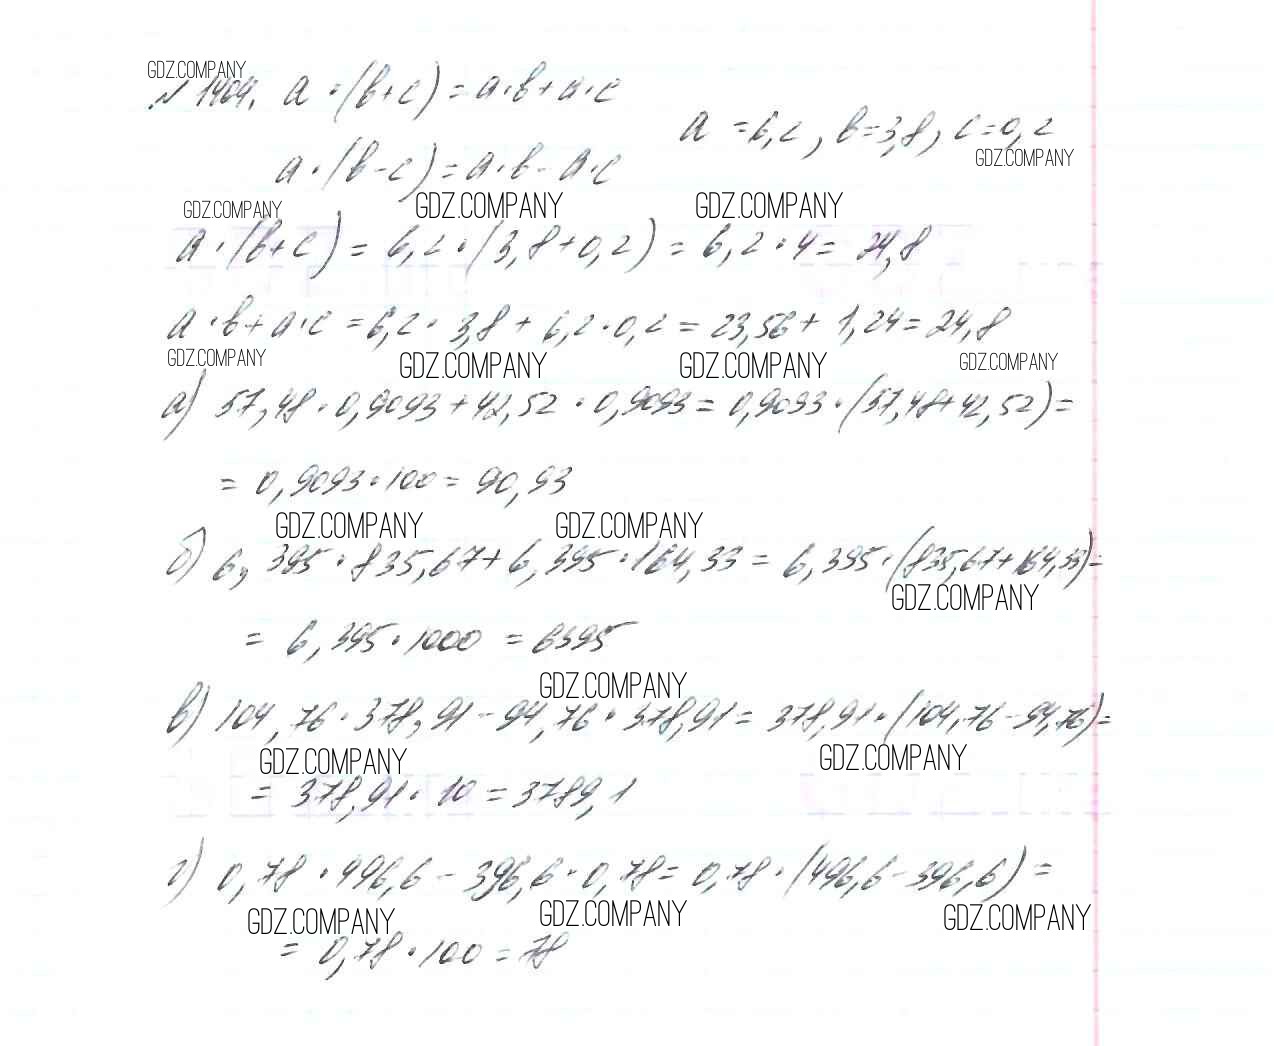 GDZ.COMPANY
№ 1404. a · (b+c) = a·b + a·c
a = 6,2, b = 3,8, c = 0,2
GDZ.COMPANY
a · (b - c) = a·b - a·c
GDZ.COMPANY GDZ.COMPANY GDZ.COMPANY
a · (b+c) = 6,2 · (3,8 + 0,2) = 6,2 · 4 = 24,8
a · b + a · c = 6,2 · 3,8 + 6,2 · 0,2 = 23,56 + 1,24 = 24,8
GDZ.COMPANY GDZ.COMPANY GDZ.COMPANY GDZ.COMPANY
а) 57,48 · 0,9093 + 42,52 · 0,9093 = 0,9093 · (57,48 + 42,52) =
= 0,9093 · 100 = 90,93
GDZ.COMPANY GDZ.COMPANY
б) 6,395 · 835,67 + 6,395 · 164,33 = 6,395 · (835,67 + 164,33) =
GDZ.COMPANY
= 6,395 · 1000 = 6395
GDZ.COMPANY
в) 104,76 · 378,91 - 94,76 · 378,91 = 378,91 · (104,76 - 94,76) =
GDZ.COMPANY GDZ.COMPANY
= 378,91 · 10 = 3789,1
г) 0,78 · 496,6 - 396,6 · 0,78 = 0,78 · (496,6 - 396,6) =
GDZ.COMPANY GDZ.COMPANY GDZ.COMPANY
= 0,78 · 100 = 78